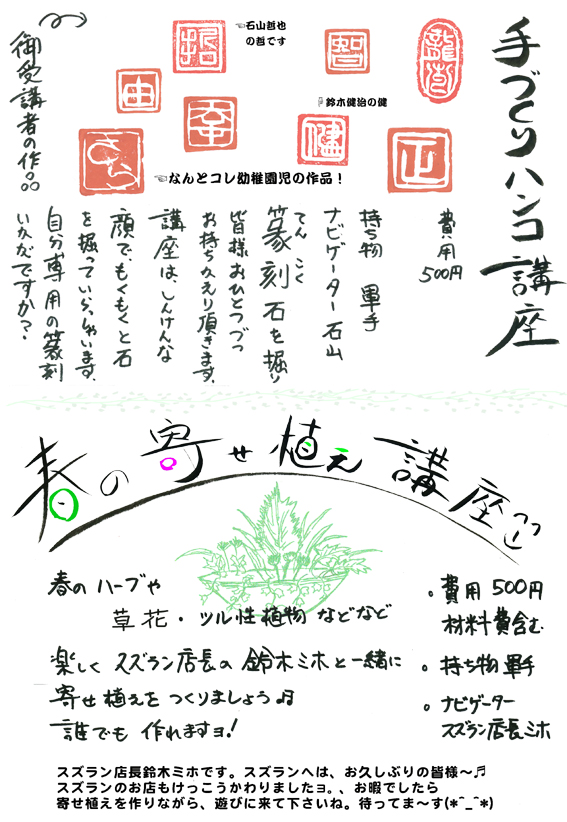 手づくりハンコ講座
費用
500円
持ち物 軍手
ナビゲーター石山
てん こく
篆刻石を掘り
皆様おひとつづつ
お持ちかえり頂きます。
講座は、しんけんな
顔で、もくもくと石
を掘っていらっしゃいます。
自分専用の篆刻
いかがですか？
御受講者の作品
☜石山哲也
の哲です
☞鈴木健治の健
☜なんとコレ幼稚園児の作品！
哲
智
由
李
健
正
さら
春の寄せ植え講座
春のハーブや
草花・ツル性植物などなど
楽しくスズラン店長の鈴木ミホと一緒に
寄せ植えをつくりましょう♫
誰でも作れますヨ！
。費用500円
材料費含む
。持ち物軍手
。ナビゲーター
スズラン店長ミホ
スズラン店長鈴木ミホです。スズランへは、お久しぶりの皆様〜♬
スズランのお店もけっこうかわりましたョ。、お暇でしたら
寄せ植えを作りながら、遊びに来て下さいね。待ってま〜す(*^_^*)